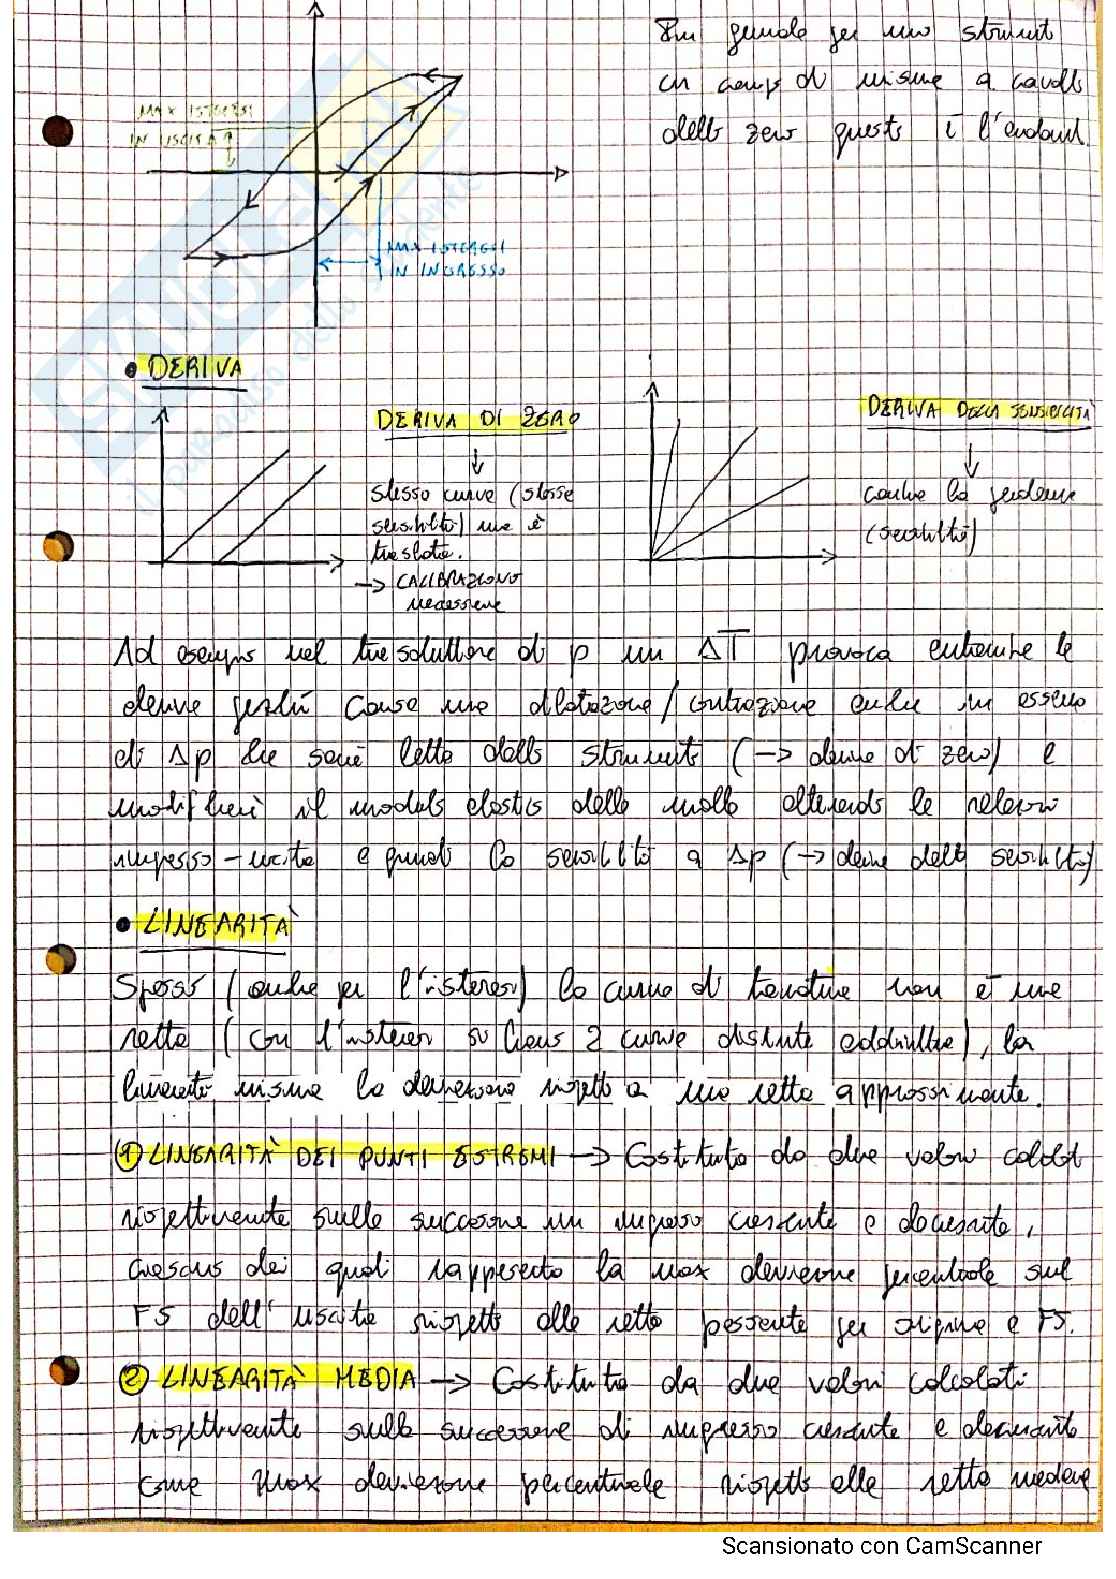 In generale per uno strument
con campo di misura a cavallo
dello zero questo è l'andament
MAX ISTERESI
IN USCITA
MAX ISTERESI
IN INGRESSO
• DERIVA
DERIVA DI ZERO
↓
stessa curva (stessa
sensibilità) ma è
traslata.
→ CALIBRAZIONE
necessaria
DERIVA DELLA SENSIBILITÀ
↓
cambia la pendenza
(sensibilità)
Ad esempio nel trasduttore di p un ΔT provoca entrambe le
derive perché causa una dilatazione/contrazione anche in assenza
di Δp che sarà letta dallo strumento (→ deriva di zero) e
modificherà il modulo elastico della molla alterando la relazione
ingresso-uscita e quindi la sensibilità a Δp (→ deriva della sensibilità)
• LINEARITÀ
Spesso (anche per l'isteresi) la curva di taratura non è una
retta (con l'isteresi si hanno 2 curve distinte addirittura), la
linearità misura la deviazione rispetto a una retta approssimante.
① LINEARITÀ DEI PUNTI ESTREMI → Costituita da due valori calcolati
rispettivamente sulla successione un ingresso crescente e decrescente,
ciascuno dei quali rappresenta la max deviazione percentuale sul
FS dell'uscita rispetto alla retta passante per origine e FS.
② LINEARITÀ MEDIA → Costituita da due valori calcolati
rispettivamente sulla successione di ingresso crescente e decrescente
come max deviazione percentuale rispetto alla retta mediana
Scansionato con CamScanner